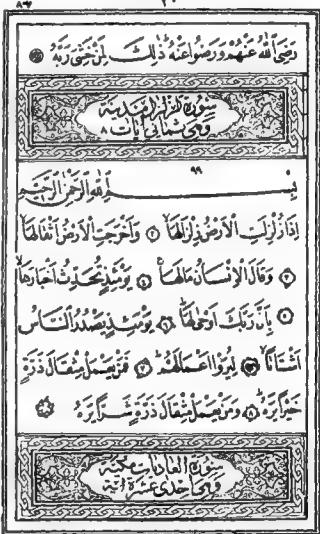 رَضِيَ اللّٰهُ عَنْهُمْ وَرَضُوا عَنْهُ ذٰلِكَ لِمَنْ خَشِيَ رَبَّهُ
سُورَةُ زلزلة مَدَنِيَّة
وَهِيَ ثَمَانِي آيَات ٨
٩٩
بِسْمِ اللّٰهِ الرَّحْمٰنِ الرَّحِيمِ
إِذَا زُلْزِلَتِ الْأَرْضُ زِلْزَالَهَا ۝ وَأَخْرَجَتِ الْأَرْضُ أَثْقَالَهَا
۝ وَقَالَ الْإِنْسَانُ مَالَهَا ۝ يَوْمَئِذٍ تُحَدِّثُ أَخْبَارَهَا
۝ بِأَنَّ رَبَّكَ أَوْحٰى لَهَا ۝ يَوْمَئِذٍ يَصْدُرُ النَّاسُ
أَشْتَاتًا لِيُرَوْا أَعْمَالَهُمْ ۝ فَمَنْ يَعْمَلْ مِثْقَالَ ذَرَّةٍ
خَيْرًا يَرَهُ ۝ وَمَنْ يَعْمَلْ مِثْقَالَ ذَرَّةٍ شَرًّا يَرَهُ ۝
سُورَةُ الْعَادِيَات مَكِّيَّة
وَهِيَ إِحْدٰى عَشْرَةَ آيَة